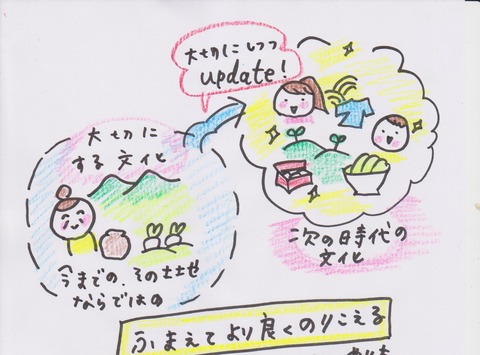 大切にしつつ
update!
大切に
する文化
今までの、その土地
ならではの
次の時代の
文化
ふまえてより良くのりこえる